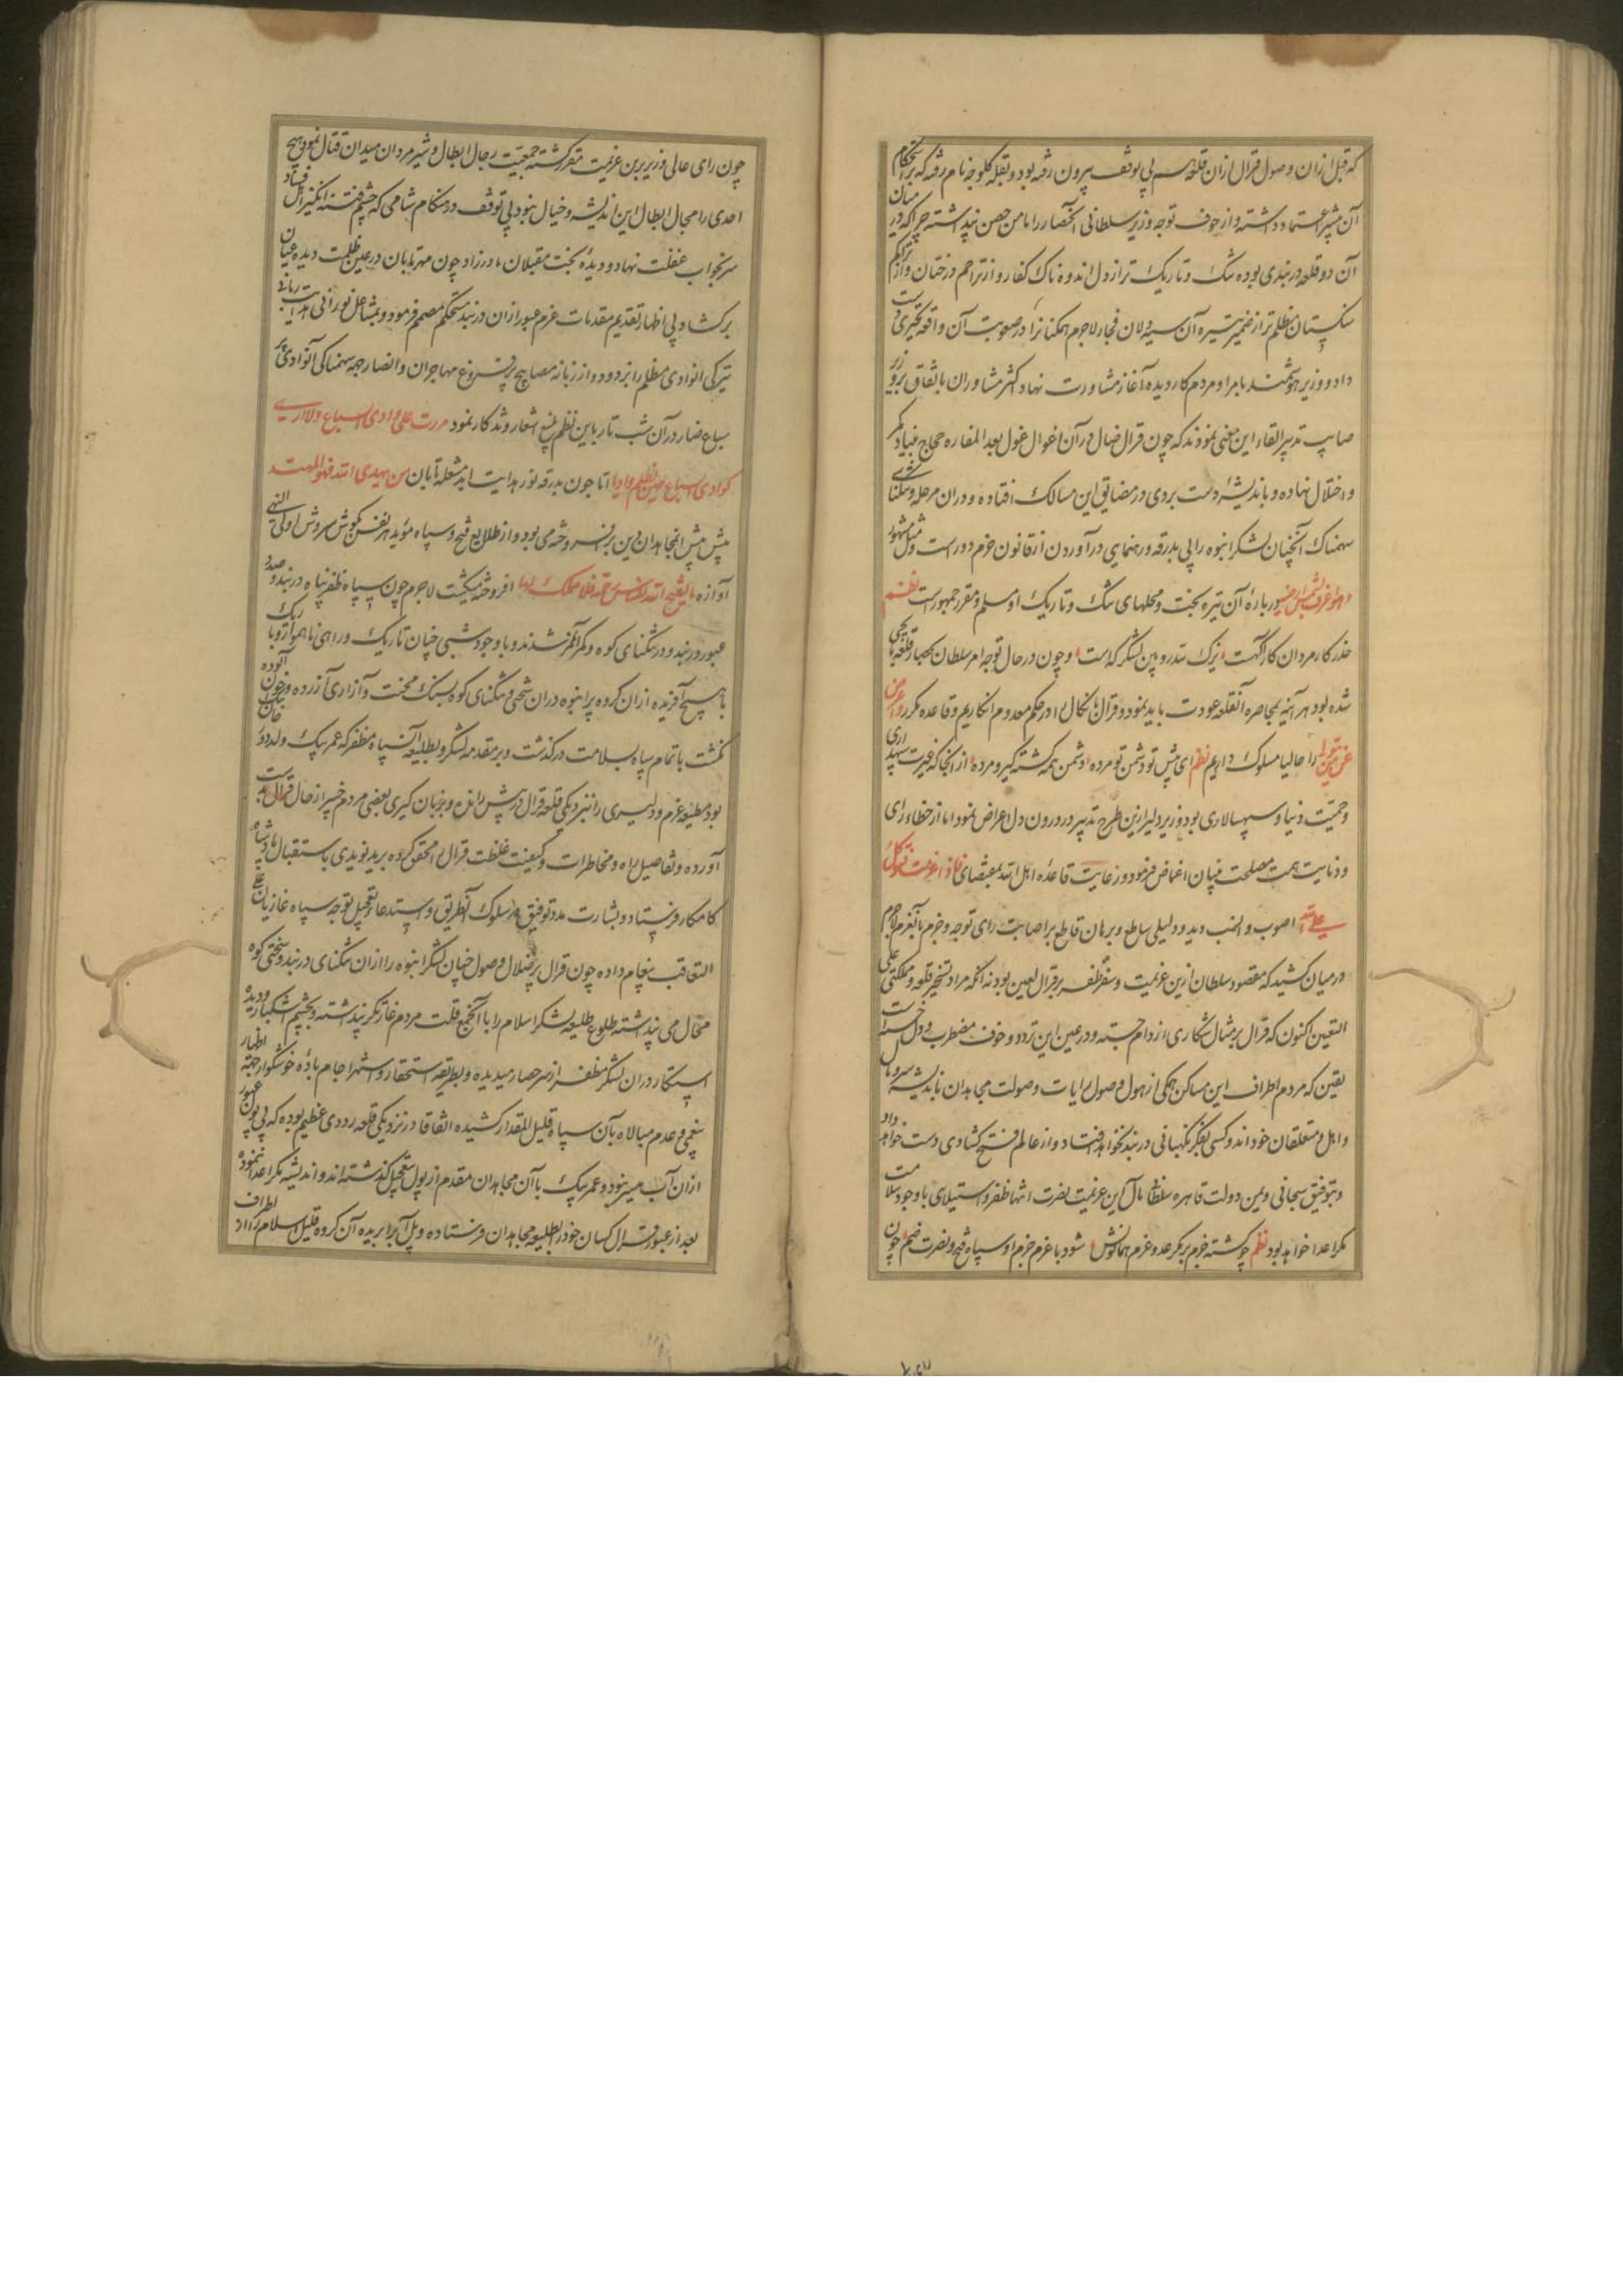 که قبل ازان وصول قرال ازان قلعه سر پی توقف بیرون رفته بود و بقلعه کلوجه نام رفته که بر استحکام
آن بیشتر اعتماد داشته و از خوف توجه وزیر سلطانی انحصار را مامن حصن پنداشته چرا که در میان
آن دو قلعه دربندی بوده تنک و تاریک تر از دل اندوه ناک کفار و از تراحم درختان و از تراکم
سنکستان مظلم تر از ضمیر تیره آن سیه دلان فجار لاجرم همکنانرا در صعوبت آن واقعه تحیری دست
داد و وزیر هوشمند با امرا و مردم کار دیده آغاز مشاورت نهاد اکثر مشاوران باتفاق بر وزیر
صایب تدبیر القاء این معنی نمودند که چون قرال ضال در آن اغوال غول بعد المفازه محتاج بنیاد مکر
و اختلال نهاده و باندیشهٔ دست بردی در مضایق این مسالک افتاده و دران مرحله و تنکنای
سهمناک آنچنان لشکر انبوه را بی بدرقه و رهنمایی در آوردن از قانون حزم دورست و مثل مشهور
در بارهٔ آن تیره بخت و محلهای تنک و تاریک او مسلم و مقرر جمهورست نظم
حذر کار مردان کار آگهست یزک سد رویین لشکر کهست و چون در حال توجه امر سلطان بحصار قلعه یایچی
شده بود هر آینه بمحاصره آنقلعه عودت باید نمود و قرال نکال را در حکم معدوم انکاریم و قاعده مکرر و اعرض
عن من تولی را حالیا مسلوک داریم نظم ای پیش تو دشمن تو مرده دشمن همه کشته کیر و مرده از انجا که غیرت سپهداری
و حمیت دنیا و سپهسالاری بود وزیر دلیر ازین طرح تدبیر در درون دل اعراض نمود اما از خطاء رای
و دنایت همت مصلحت بینان اغماض فرمود و رعایت قاعدهٔ اهل الله بمقتضای فاذا عزمت فتوکل
علی الله اصوب و انسب دید و دلیلی ساطع و برهان قاطع بر اصابت رای توجه و جزم بآنعزم لاجرم
در میان کشید که مقصود سلطان ازین عزیمت و سفر ظفر بر قرال لعین بود نه انکه مراد تسخیر قلعه و مملکتی علی
التعیین اکنون که قرال بر مثال شکاری از دام جسته و در عین این تردد و خوف مضطرب و دل خسته است
یقین که مردم اطراف این مساکن همکی از هول وصول رایات و صولت مجاهدان باندیشه سر و مال
و اهل و متعلقان خوداند و کسی بفکر نکهبانی دربند نخواهد افتاد و از عالم فتح کشادی دست خواهد داد
و بتوفیق سبحانی و یمن دولت قاهره سلطانی مآل این عزیمت نصرت انتها ظفر و استیلای با وجود سلامت
مکر اعدا خواهد بود نظم چو کشته حزم بر مکر عدو عزم همایونش شود با عزم جزم او سپاه فتح و نصرت ضم چون
چون رای عالی وزیر برین عزیمت مقرر کشته جمعیت رجال ابطال و شیر مردان میدان قتال نمود و هیچ
احدی را مجال ابطال این اندیشه و خیال نبود بی توقف در هنکام شامی که چشم فتنه انکیز اهل فساد
سر بخواب غفلت نهاد و دیدهٔ بخت مقبلان مادرزاد چون مهر تابان در عین ظلمت دیده عیان
برکشاد بی اظهار تقدیم مقدمات عزم عبور ازان دربند مستحکم مصمم فرمود و بمشاعل نورانی هدایت ربانی
تیرکی انوادی مظلم را بزدود و از زبانه مصابیح پر فروغ مهاجران و انصار جمه سهمناکی آنوادی پر
سباع ضار در آن شب تار باین نظم بلیغ اشعار و تذکار نمود مررت علی وادی السباع ولا اری
کوادی السباع حین تظلم وادیا اما چون بدرقه نور هدایت ابد مشعله تابان من یهدی الله فهو المهتد
پیش پیش انمجاهدان دین بر افروخته می بود و از طلایع فتح و سپاه موید هر نفس بکوش سروش اولی النهی
آوازه ما یفتح الله للناس من رحمة فلا ممسک لها افروخته میکشت لاجرم چون سپاه ظفر پناه در بند و صدد
عبور دربند و در تنکنای کوه و کمر آنمرز شدند و با وجود شبی چنان تاریک و راهی ناهموار و باریک
پای هیچ آفریده ازان کروه پر انبوه دران سختی و تنکنای کوه بسنک محنت و آزاری آزرده و بخون آلوده
نکشت با تمام سپاه بسلامت درکذشت و بر مقدمه لشکر و بطلیعه آن سپاه مظفر که عمر بیک ولد
بود مطیعه عزم و دلیری را بنزدیکی قلعه قرال در پیش رانده و بزبان کیری بعضی مردم خبر از حال قرال بدست
آورده و تفاصیل راه و مخاطرات و کیفیت غلظت قرال را محقق کرده برید نویدی باستقبال پادشاه
کامکار فرستاد و بشارت مدد توفیق در سلوک آنطریق و استدعاء تعجیل توجه سپاه غازیان علی
التعاقب پیغام داده چون قرال پر ضلال وصول چنان لشکر انبوه را ازان تنکنای دربند و سختی کوه
محال می پنداشته طلوع طلیعه لشکر اسلام را با آنجمع قلت مردم غارتکر پنداشته و بچشم استکبار دیده
استکار دران لشکر مظفر از سر حصار میدیده و بطریقه استحقار و استهزا جام بادهٔ خوشکوار جهة اظهار
بیغمی و عدم مبالاه بآن سپاه قلیل المقدار کشیده اتفاقا در نزدیکی قلعه رودی عظیم بوده که بی پول عبور
ازان آب میسر نبود و عمر بیک با آن مجاهدان مقدم از پول بتعجیل کذشته اند و اندیشه مکر اعدا ننموده
بعد از عبور قرال کسان خود را بطلیعه مجاهدان فرستاده و پل آبرا بریده آن کروه قلیل اسلام را از اطراف